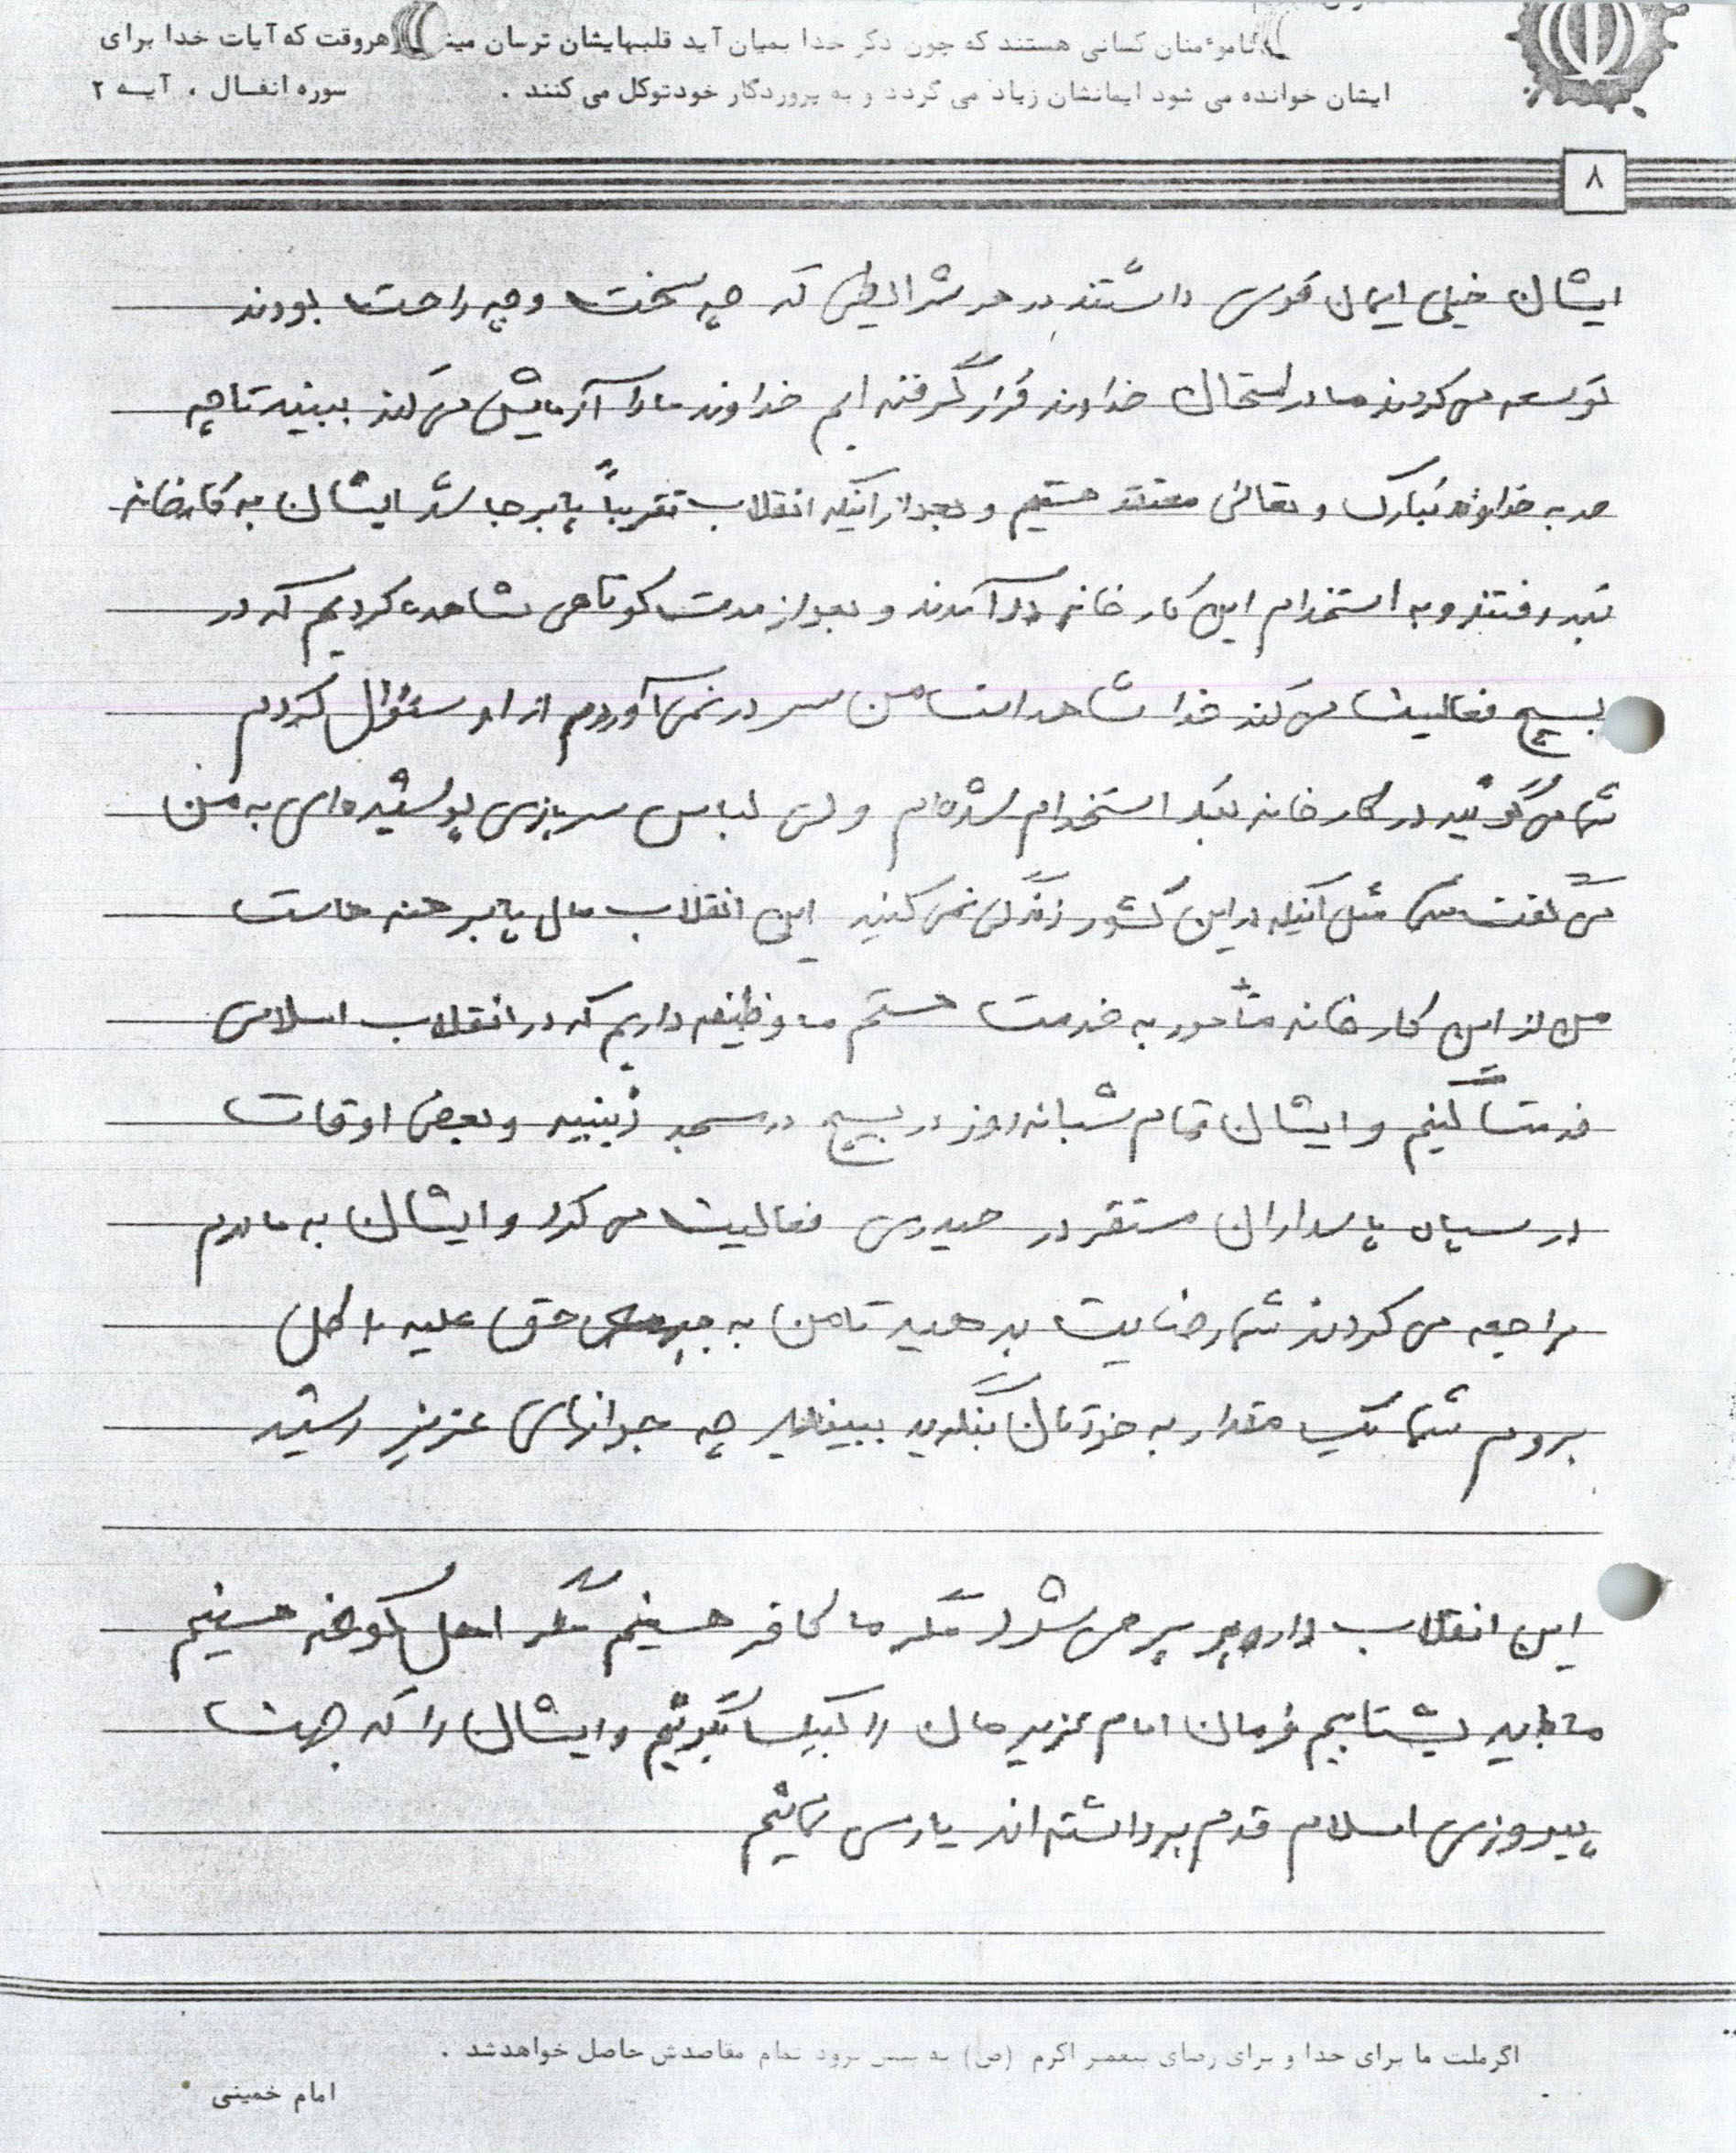 مؤمنان کسانی هستند که چون ذکر خدا بمیان آید قلبهایشان ترسان هروقت که آیات خدا برای
ایشان خوانده می شود ایمانشان زیاد می گردد و به پروردگار خودتوکل می کنند . سوره انفال ، آیه ۲
۸
ایشان خیلی ایمان قوی داشتند در هر شرایطی که چه سخت و چه راحت بودند
توسعه می‌کردند ما در امتحان خداوند قرار گرفته ایم خداوند ما را آزمایش می کند ببیند تا چه
حد به خداوند تبارک و تعالی معتقد هستیم و بعد از اینکه انقلاب تقریباً پابرجا شد ایشان به کارخانه
رفتند و به استخدام این کارخانه درآمدند و بعد از مدت کوتاهی مشاهده کردیم که در
بسیج فعالیت می کند خدا شاهد است من سر در نمی آوردم از او سئوال کردم
شما می گوئید در کارخانه استخدام شده‌ام ولی لباس سربازی پوشیده‌ای به من
می گفت مثل اینکه در این کشور زندگی نمی کنید این انقلاب مال پابرهنه هاست
من از این کارخانه مأمور به خدمت هستم ما وظیفه داریم که در انقلاب اسلامی
خدمت کنیم و ایشان تمام شبانه روز در بسیج در مسجد زینبیه و بعضی اوقات
در سپاه پاسداران مستقر در حیدری فعالیت می کرد و ایشان به مادرم
مراجعه می کردند شما رضایت بدهید تا من به حق علیه باطل
بروم شما یک مقدار به خودتان بنگرید ببینید چه جوانهای عزیز رشید
این انقلاب دارد پر پر می شود مگر ما کافر هستیم مگر اهل کوفه هستیم
ما باید بشتابیم فرمان امام عزیزمان را لبیک بگوئیم و ایشان را که جهت
پیروزی اسلام قدم برداشته اند یاری نمائیم
اگر ملت ما برای خدا و برای رضای پیغمبر اکرم (ص) به پیش برود تمام مقاصدش حاصل خواهدشد .
امام خمینی